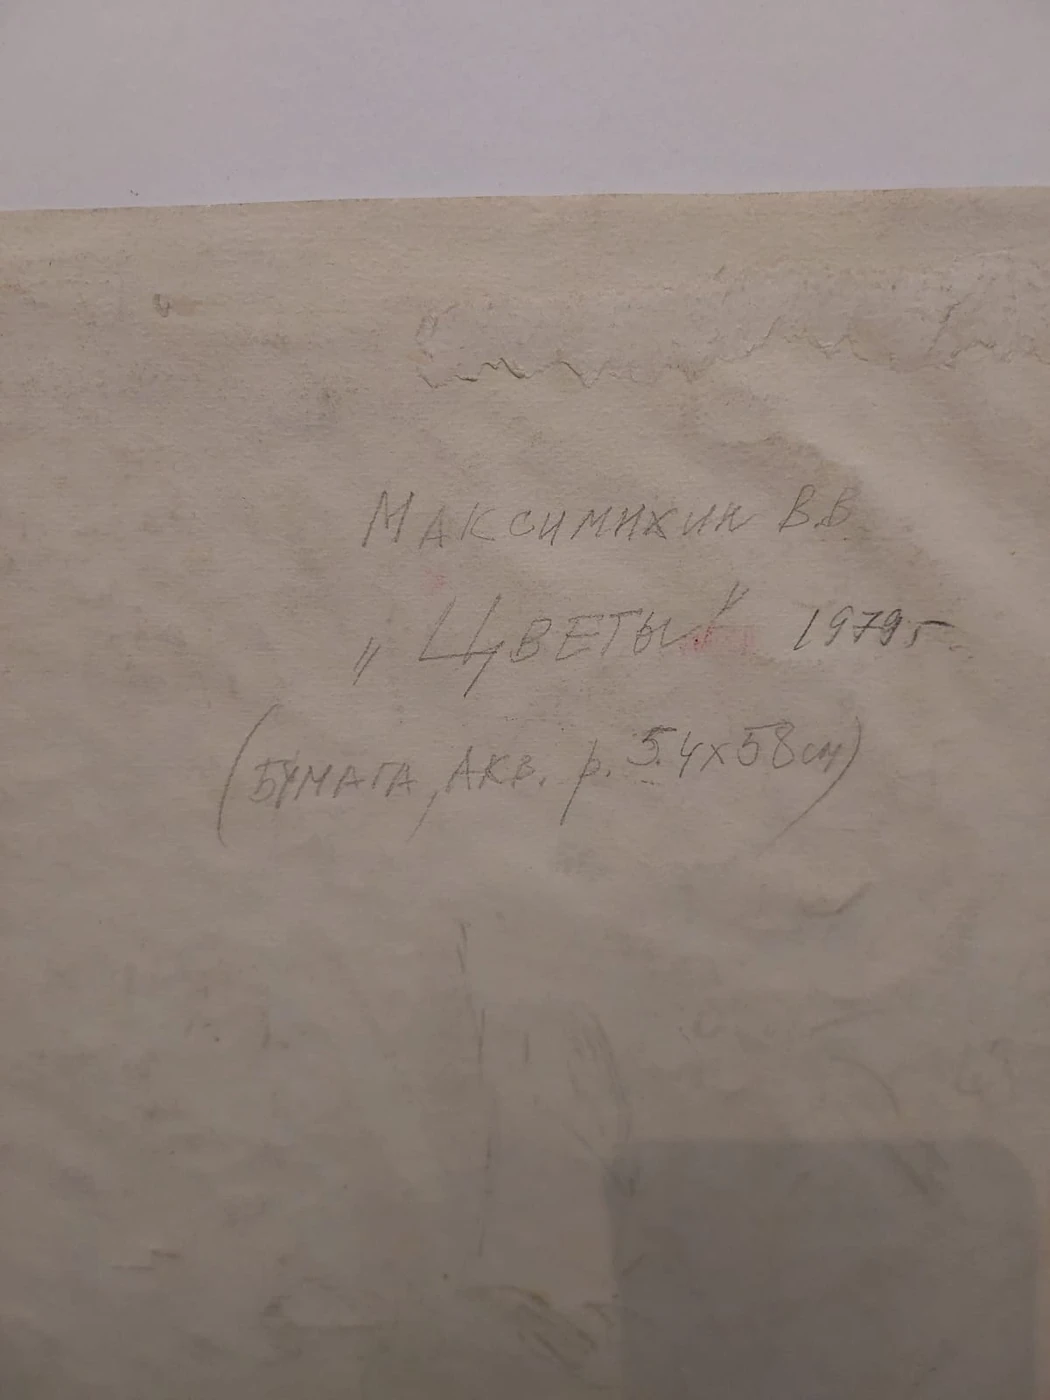 Максимихин В.В.
„Цветы" 1979г
(Бумага, акв. р. 54х58см)